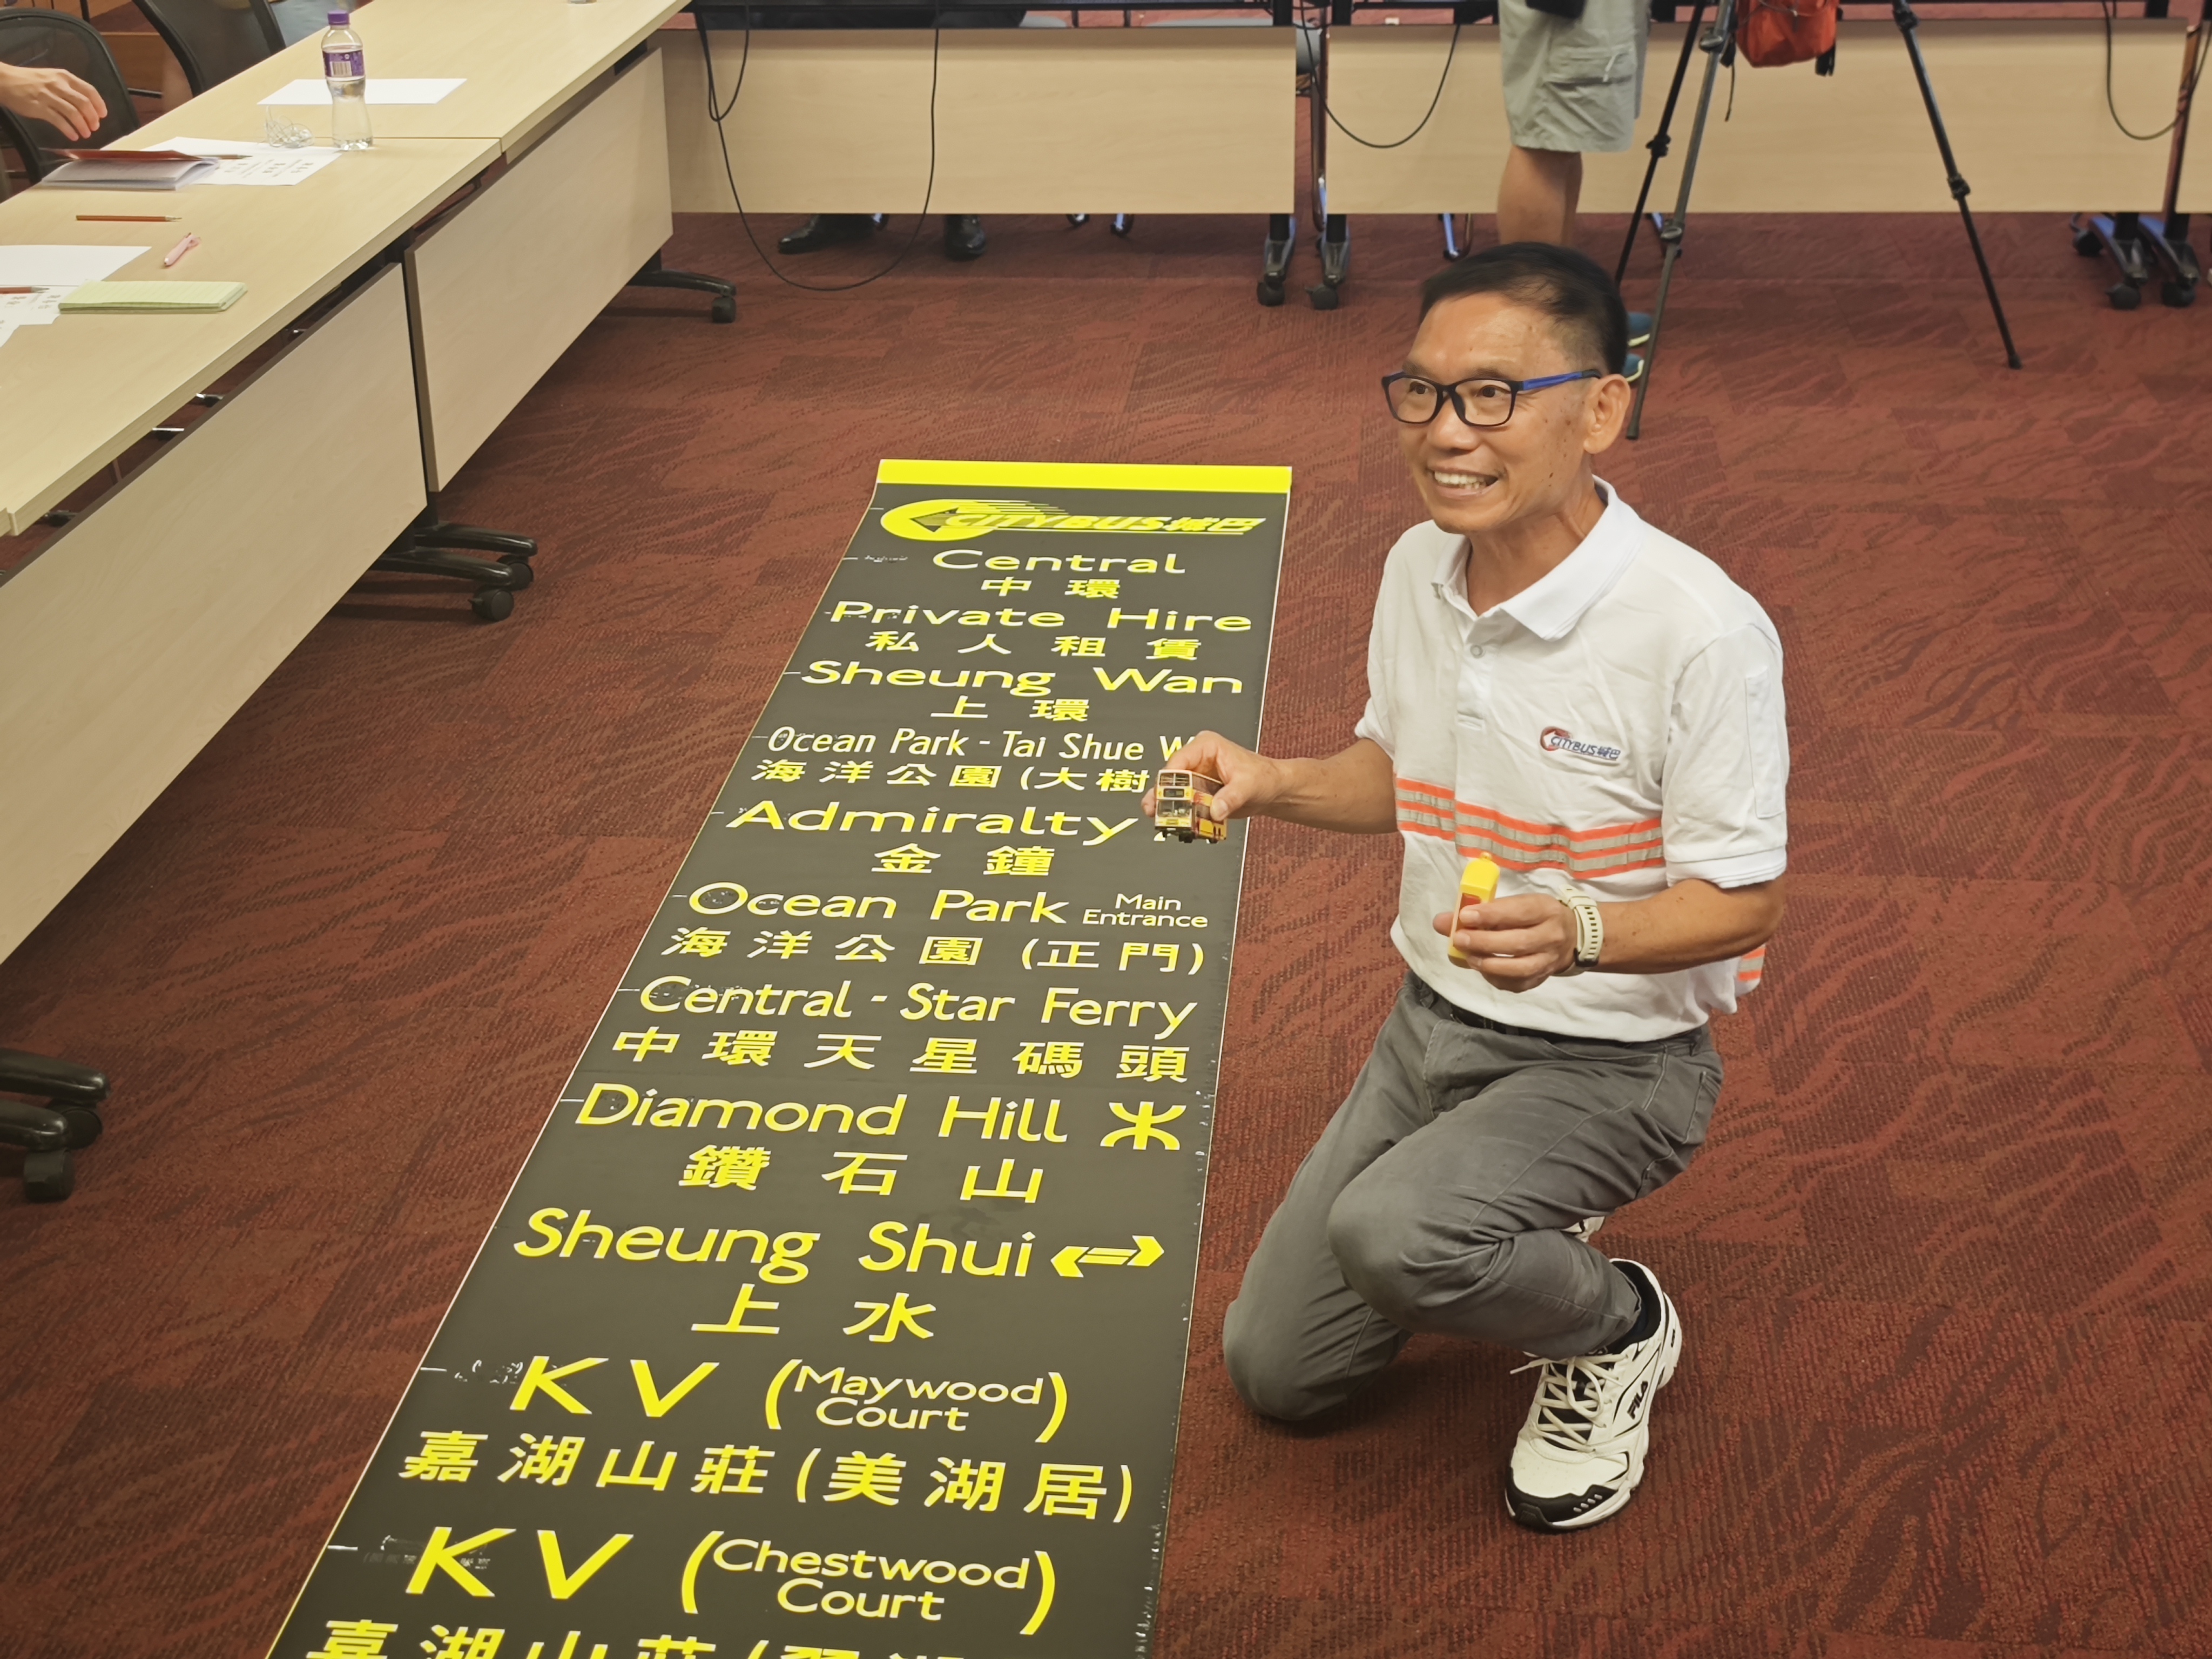 CITYBUS城巴
Central
中環
Private Hire
私人租賃
Sheung Wan
上環
Ocean Park - Tai Shue W
海洋公園(大樹
Admiralty
金鐘
Ocean Park Main Entrance
海洋公園 (正門)
Central - Star Ferry
中環天星碼頭
Diamond Hill
鑽石山
Sheung Shui
上水
KV (Maywood Court)
嘉湖山莊(美湖居)
KV (Chestwood Court)
嘉湖山莊(
CITYBUS城巴
FILA